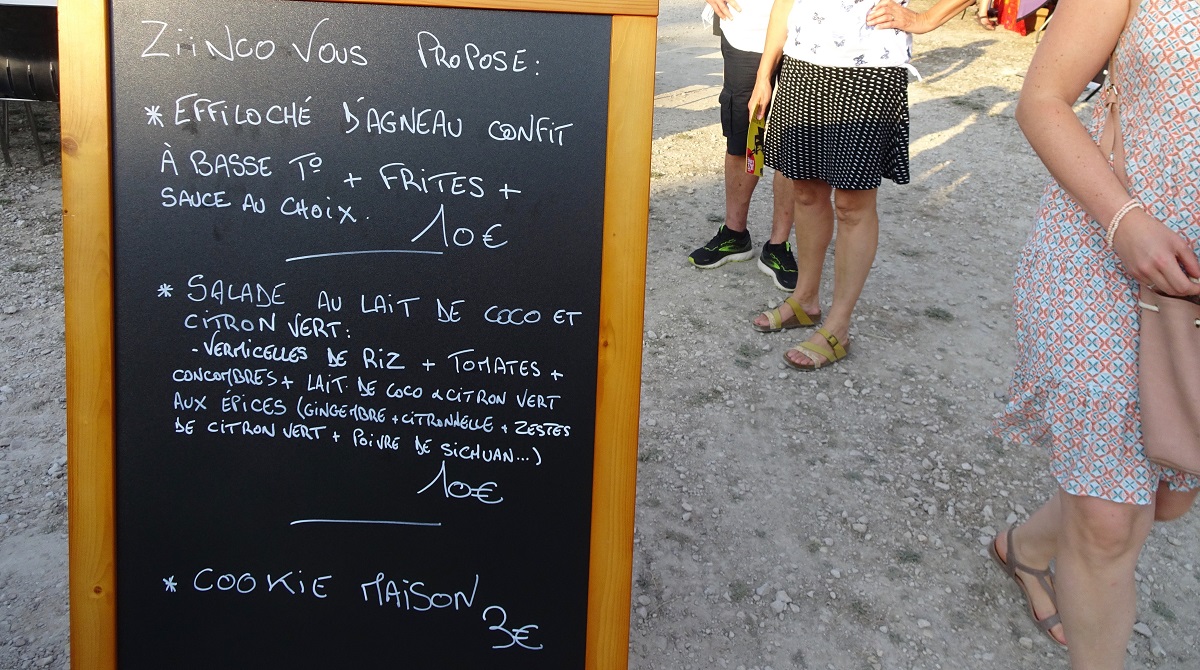 ZiiNCO VOUS PROPOSE:
* EFFILOCHÉ D'AGNEAU CONFIT
À BASSE T° + FRITES +
SAUCE AU CHOIX.
10€
* SALADE AU LAIT DE COCO ET
CITRON VERT:
- VERMICELLES DE RIZ + TOMATES +
CONCOMBRES + LAIT DE COCO & CITRON VERT
AUX ÉPICES (GINGEMBRE + CITRONNELLE + ZESTES
DE CITRON VERT + POIVRE DE SICHUAN...)
10€
* COOKIE MAISON
3€